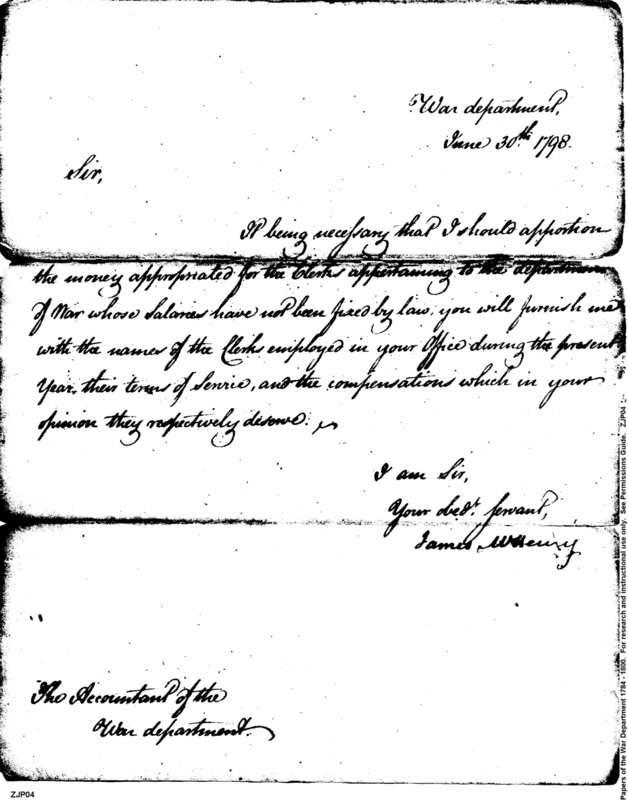 War department,
June 30th. 1798.
Sir,
It being necessary that I should apportion
the money appropriated for the Clerks appertaining to the department
of War whose Salaries have not been fixed by law; you will furnish me
with the names of the Clerks employed in your Office during the present
Year, their terms of Service, and the compensations which in your
opinion they respectively deserve.
I am Sir,
Your obedt. servant,
James McHenry
The Accountant of the
War department.
ZJP04
Papers of the War Department 1784 - 1800. For research and instructional use only. See Permissions Guide. ZJP04